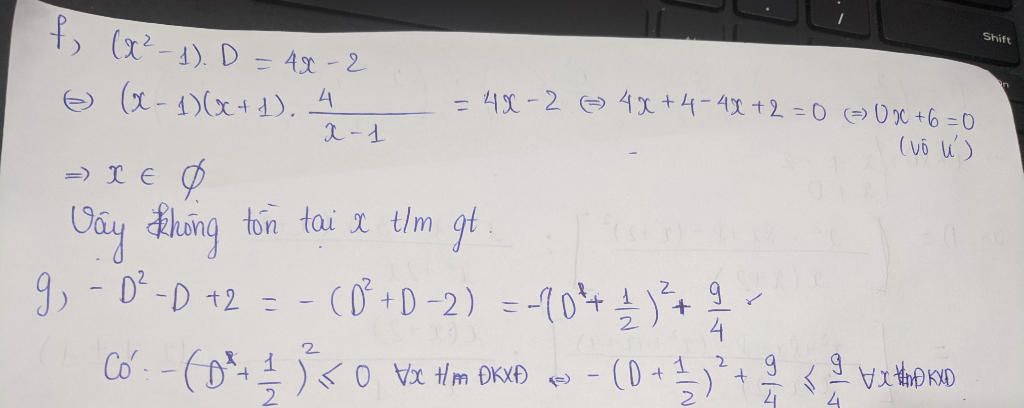 f, (x² - 1). D = 4x - 2
⇔ (x - 1)(x + 1). 4/(x - 1) = 4x - 2 ⇔ 4x + 4 - 4x + 2 = 0 ⇔ 0x + 6 = 0
(vô lí)
⇒ x ∈ ∅
Vậy không tồn tại x t/m gt.
g, - D² - D + 2 = - (D² + D - 2) = - (D + 1/2)² + 9/4
Có: - (D + 1/2)² ≤ 0 ∀x t/m ĐKXĐ ⇔ - (D + 1/2)² + 9/4 ≤ 9/4 ∀x t/m ĐKXĐ
/
Shift